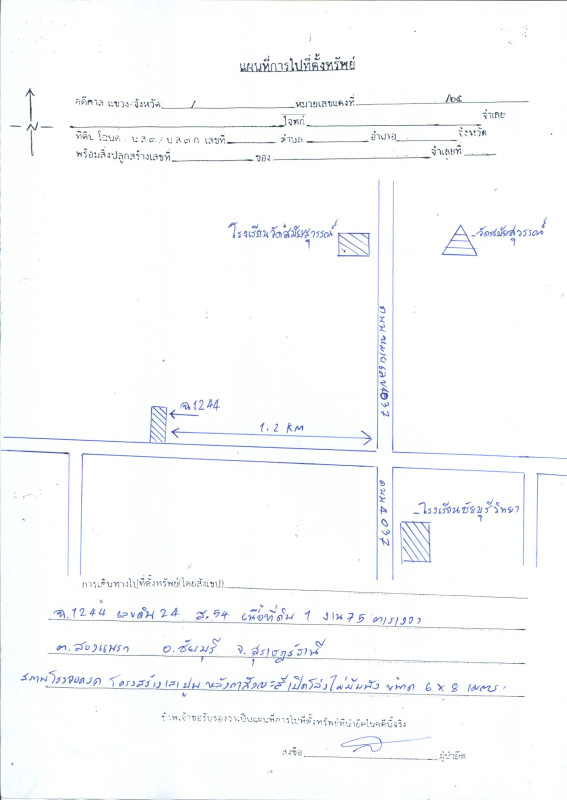 แผนที่การไปที่ตั้งทรัพย์
คดีศาล แขวง/จังหวัด / หมายเลขแดงที่ /๒๕
โจทก์ จำเลย
ที่ดิน โฉนด / น.ส.๓ / น.ส.๓ ก เลขที่ ตำบล อำเภอ จังหวัด
พร้อมสิ่งปลูกสร้างเลขที่ ของ จำเลยที่
N
โรงเรียนวัดสมัยสุวรรณ์
วัดสมัยสุวรรณ์
ถนนหมายเลข 4037
ฉ.1244
1.2 KM
ถนน 4037
โรงเรียนชัยบุรีวิทยา
การเดินทางไปที่ตั้งทรัพย์(โดยสังเขป)
ฉ.1244 เลขดิน 24 ส.54 เนื้อที่ดิน 1 งาน 75 ตารางวา
ต.สองแพรก อ.ชัยบุรี จ.สุราษฎร์ธานี
สภาพโรงจอดรถ โครงสร้างเสาปูน หลังคาสังกะสี เปิดโล่งไม่มีผนัง ขนาด 6 x 8 เมตร
ข้าพเจ้าขอรับรองว่าเป็นแผนที่การไปที่ตั้งทรัพย์ที่นำยึดในคดีนี้จริง
ลงชื่อ ผู้นำยึด